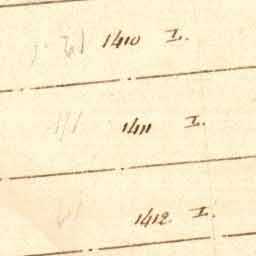 1410 I.
1411 I.
1412 I.